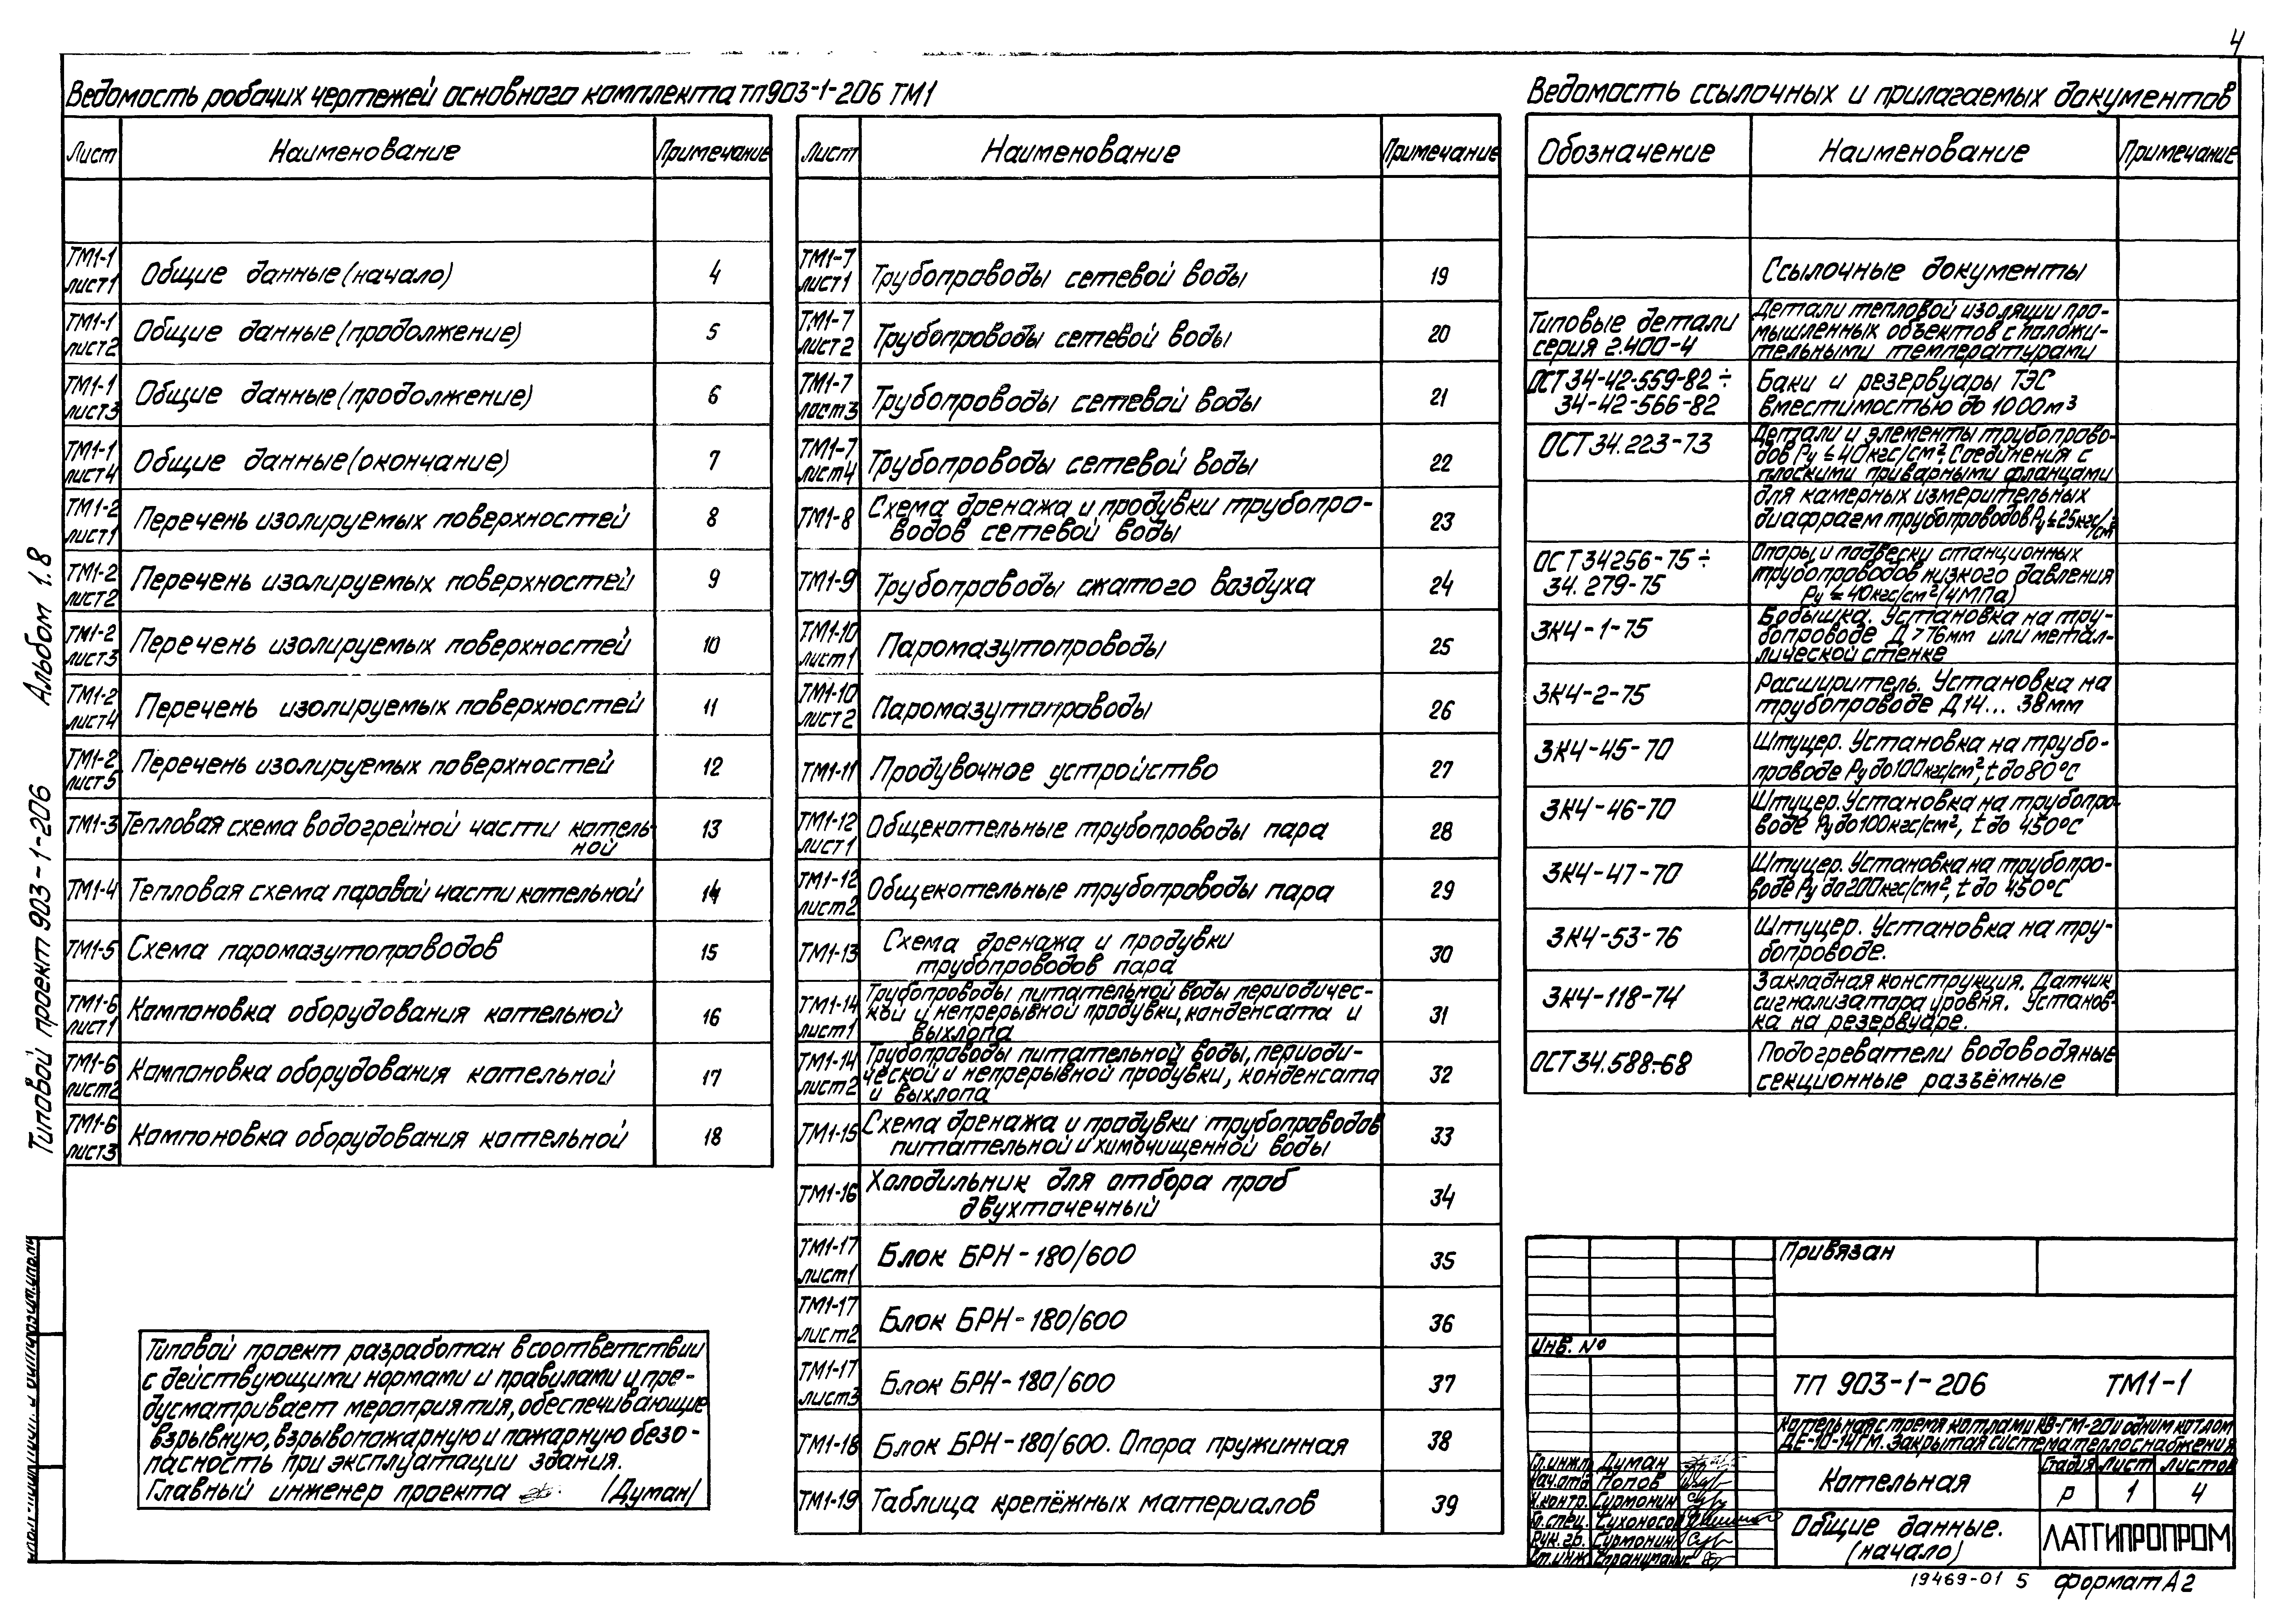 4
Ведомость рабочих чертежей основного комплекта ТП903-1-206 ТМ1
Лист Наименование Примечание
ТМ1-1 лист1 Общие данные (начало) 4
ТМ1-1 лист2 Общие данные (продолжение) 5
ТМ1-1 лист3 Общие данные (продолжение) 6
ТМ1-1 лист4 Общие данные (окончание) 7
ТМ1-2 лист1 Перечень изолируемых поверхностей 8
ТМ1-2 лист2 Перечень изолируемых поверхностей 9
ТМ1-2 лист3 Перечень изолируемых поверхностей 10
ТМ1-2 лист4 Перечень изолируемых поверхностей 11
ТМ1-2 лист5 Перечень изолируемых поверхностей 12
ТМ1-3 Тепловая схема водогрейной части котель-
ной 13
ТМ1-4 Тепловая схема паровой части котельной 14
ТМ1-5 Схема паромазутопроводов 15
ТМ1-6 лист1 Компоновка оборудования котельной 16
ТМ1-6 лист2 Компоновка оборудования котельной 17
ТМ1-6 лист3 Компоновка оборудования котельной 18
Лист Наименование Примечание
ТМ1-7 лист1 Трубопроводы сетевой воды 19
ТМ1-7 лист2 Трубопроводы сетевой воды 20
ТМ1-7 лист3 Трубопроводы сетевой воды 21
ТМ1-7 лист4 Трубопроводы сетевой воды 22
ТМ1-8 Схема дренажа и продувки трубопро-
водов сетевой воды 23
ТМ1-9 Трубопроводы сжатого воздуха 24
ТМ1-10 лист1 Паромазутопроводы 25
ТМ1-10 лист2 Паромазутопроводы 26
ТМ1-11 Продувочное устройство 27
ТМ1-12 лист1 Общекотельные трубопроводы пара 28
ТМ1-12 лист2 Общекотельные трубопроводы пара 29
ТМ1-13 Схема дренажа и продувки
трубопроводов пара 30
ТМ1-14 лист1 Трубопроводы питательной воды периодичес-
кой и непрерывной продувки, конденсата и
выхлопа 31
ТМ1-14 лист2 Трубопроводы питательной воды, периоди-
ческой и непрерывной продувки, конденсата
и выхлопа 32
ТМ1-15 Схема дренажа и продувки трубопроводов
питательной и химочищенной воды 33
ТМ1-16 Холодильник для отбора проб
двухточечный 34
ТМ1-17 лист1 Блок БРН-180/600 35
ТМ1-17 лист2 Блок БРН-180/600 36
ТМ1-17 лист3 Блок БРН-180/600 37
ТМ1-18 Блок БРН-180/600. Опора пружинная 38
ТМ1-19 Таблица крепёжных материалов 39
Ведомость ссылочных и прилагаемых документов
Обозначение Наименование Примечание
Ссылочные документы
Типовые детали
серия 2.400-4
Детали тепловой изоляции про-
мышленных объектов с положи-
тельными температурами
ОСТ34-42-559-82 ÷
34-42-566-82
Баки и резервуары ТЭС
вместимостью до 1000м³
ОСТ34.223-73
Детали и элементы трубопрово-
дов Ру ≤ 40кгс/см². Соединения с
плоскими приварными фланцами
для камерных измерительных
диафрагм трубопроводов Ру≤25кгс/см²
ОСТ34256-75 ÷
34.279-75
Опоры и подвески станционных
трубопроводов низкого давления
Ру ≤ 40кгс/см² (4МПа)
ЗК4-1-75
Бобышка. Установка на тру-
бопроводе Д >76мм или метал-
лической стенке
ЗК4-2-75
Расширитель. Установка на
трубопроводе Д14... 38мм
ЗК4-45-70
Штуцер. Установка на трубо-
проводе Ру до100кгс/см², t до80°С
ЗК4-46-70
Штуцер. Установка на трубопро-
воде Ру до100кгс/см², t до 450°С
ЗК4-47-70
Штуцер. Установка на трубопро-
воде Ру до200кгс/см², t до 450°С
ЗК4-53-76
Штуцер. Установка на тру-
бопроводе.
ЗК4-118-74
Закладная конструкция. Датчик
сигнализатора уровня. Установ-
ка на резервуаре.
ОСТ34.588-68
Подогреватели водоводяные
секционные разъёмные
Типовой проект 903-1-206 Альбом 1.8
Типовой проект разработан в соответствии
с действующими нормами и правилами и пре-
дусматривает мероприятия, обеспечивающие
взрывную, взрывопожарную и пожарную безо-
пасность при эксплуатации здания.
Главный инженер проекта /Думан/
Привязан
Инв. №
ТП 903-1-206 ТМ1-1
Котельная с тремя котлами КВ-ГМ-20 и одним котлом
ДЕ-10-14ГМ. Закрытая система теплоснабжения
Гл.инж. Думан
Нач.отд Попов
Н.контр. Сурмонин
Гл.спец. Сухоносов
Рук.гр. Сурмонин
Ст.инж.
Котельная
Стадия Лист Листов
Р 1 4
Общие данные.
(начало)
ЛАТГИПРОПРОМ
19469-01 5 Формат А2